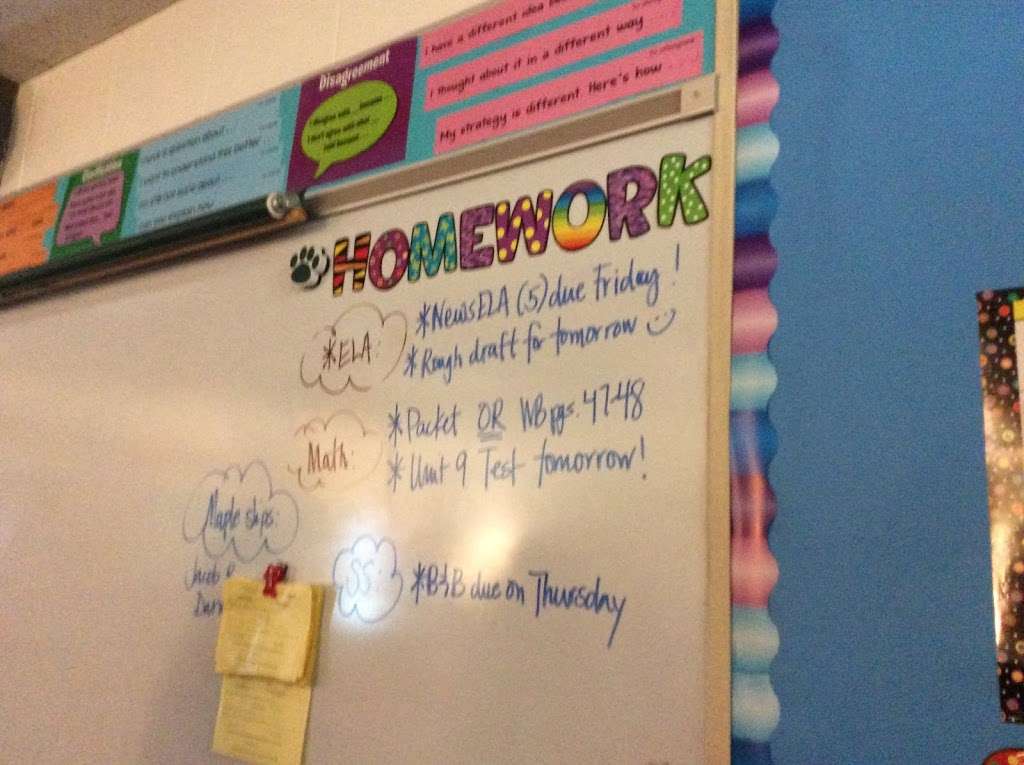 I have a different idea
I thought about it in a different way
My strategy is different. Here's how
Disagreement
I disagree with ... because
I have a question about ...
HOMEWORK
*ELA:
*NewsELA (5) due Friday!
*Rough draft for tomorrow
Math:
*Packet OR WB pgs. 47-48
*Unit 9 Test tomorrow!
Maple slips:
Jacob
SS:
*B&B due on Thursday